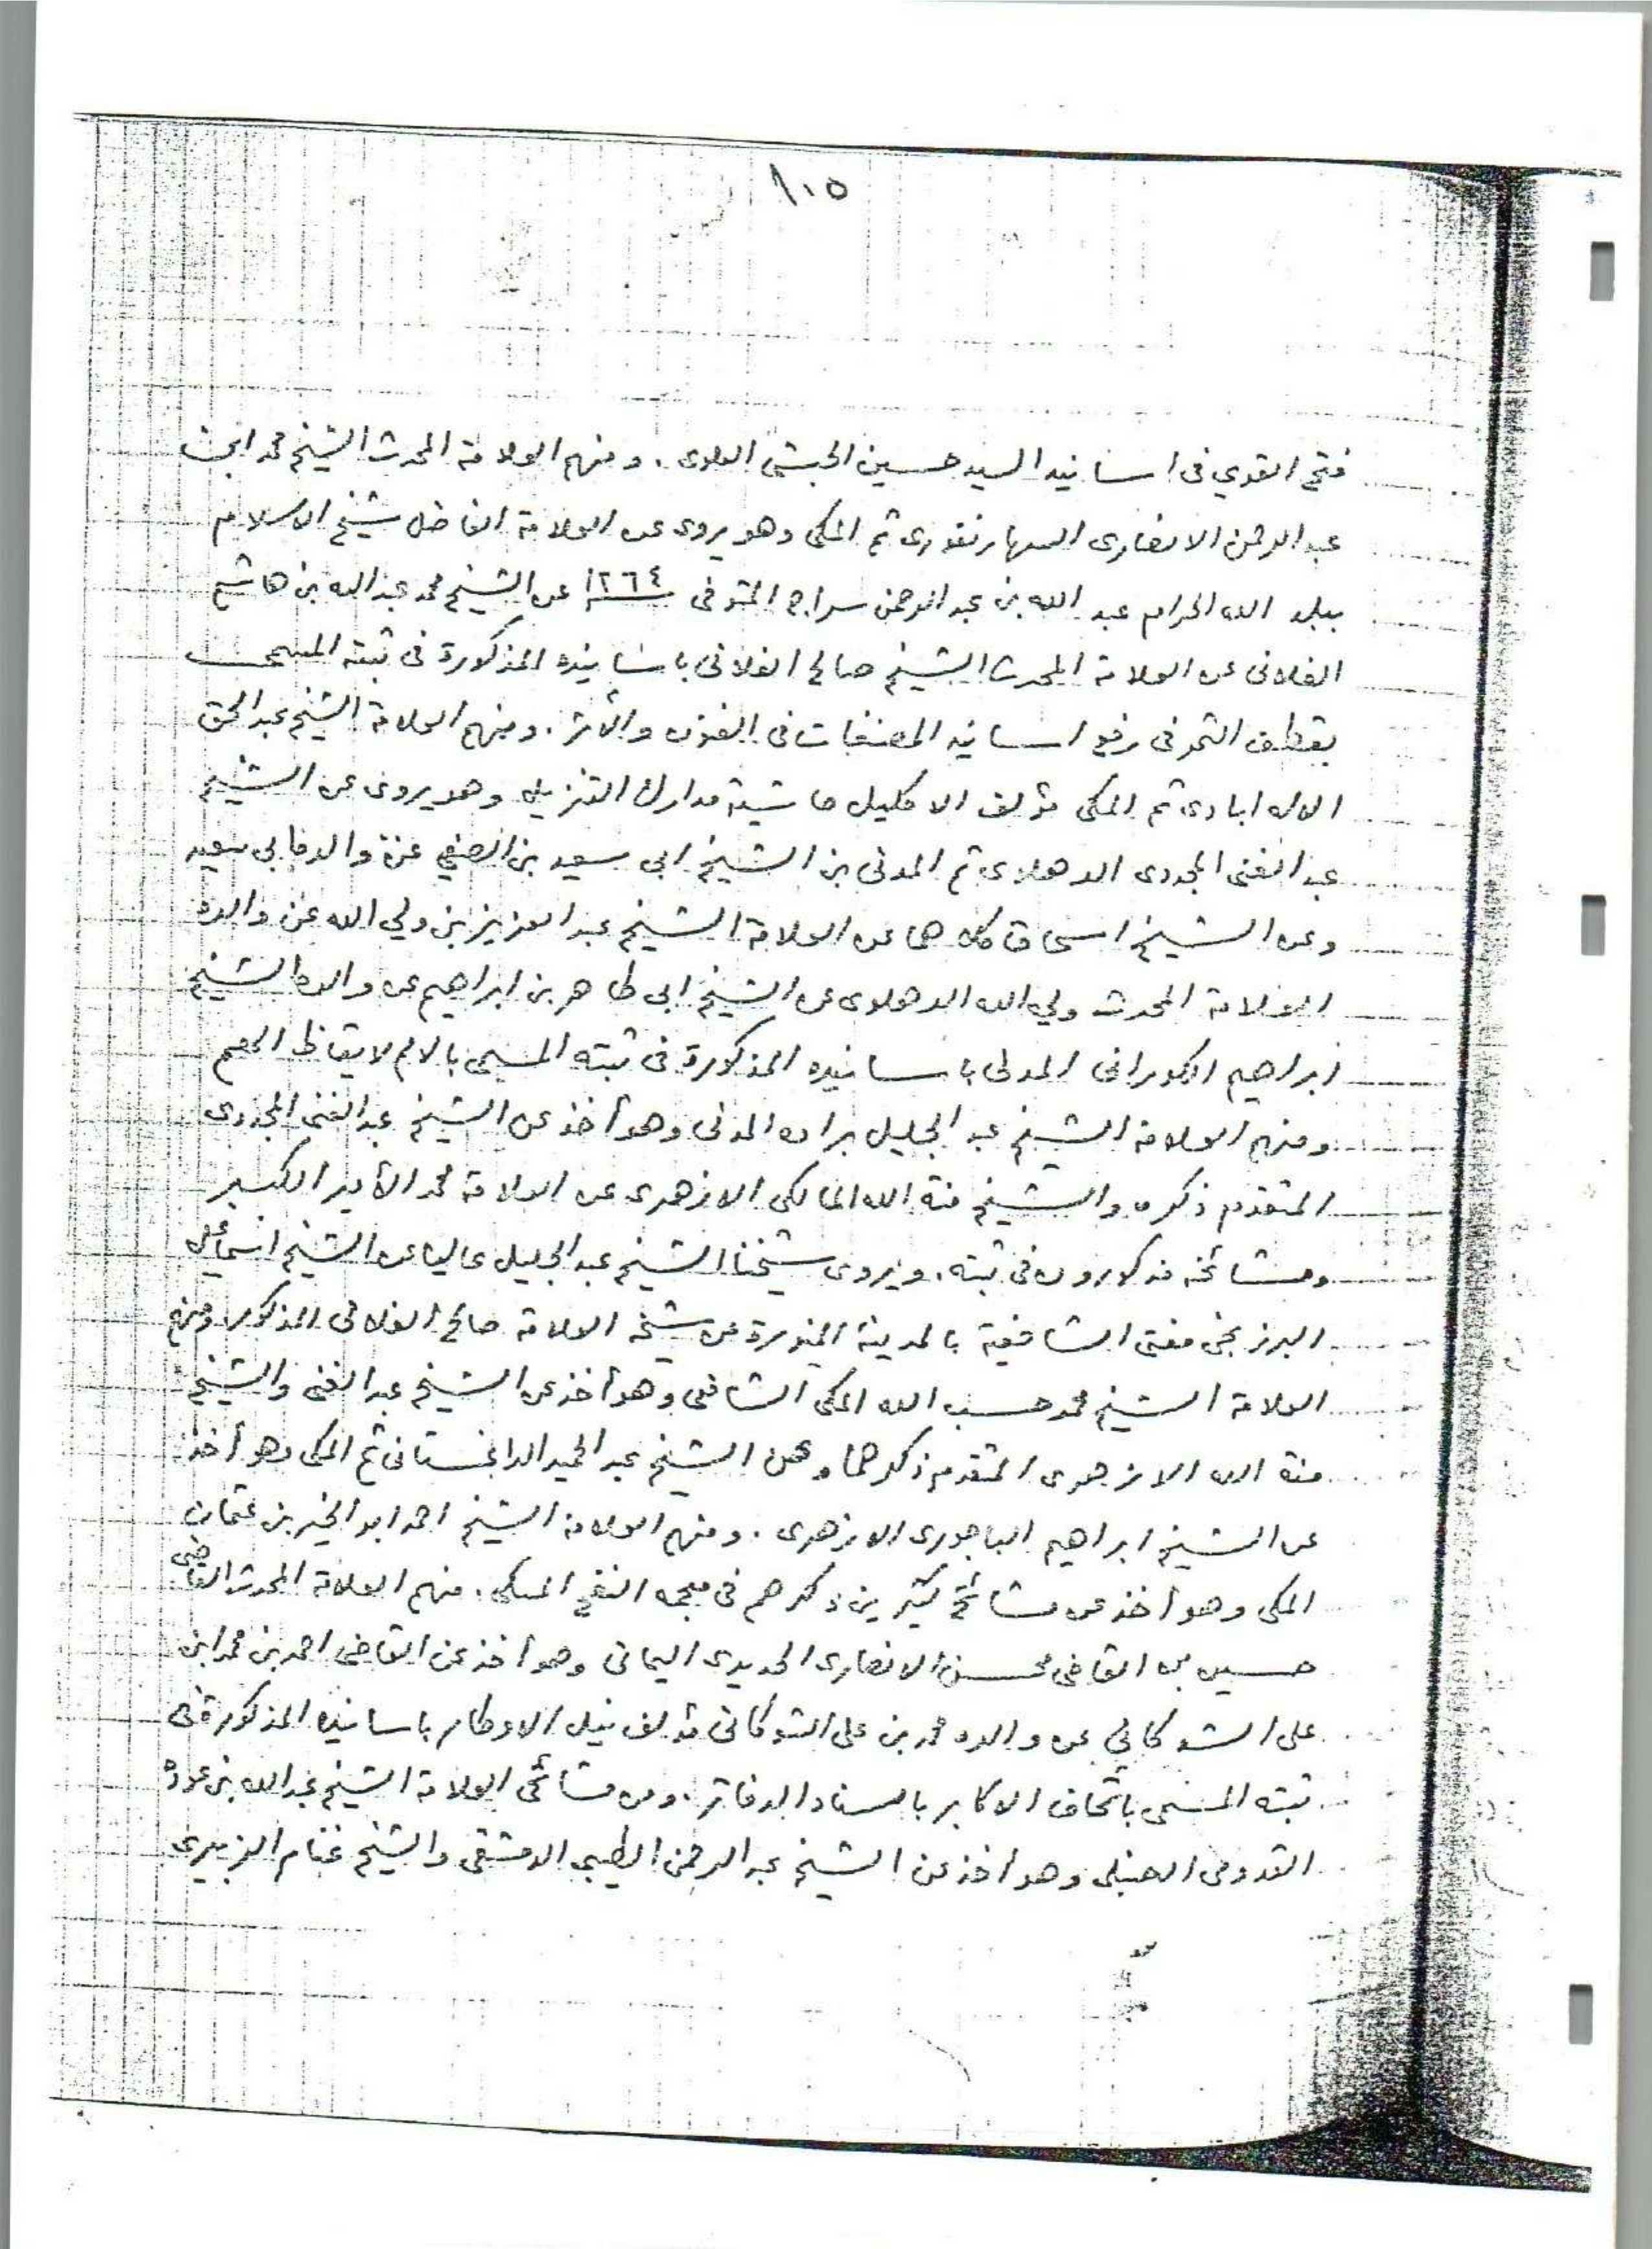 ١٠٥
فتح القوي فى اسانيد السيد حسين الحبشى العلوى. ومنهم العلامة المحدث الشيخ محمد ابن
عبد الرحمن الانصارى السهارنفورى ثم المكى وهو يروى عن العلامة الفاضل شيخ الاسلام
ببلد الله الحرام عبد الله بن عبد الرحمن سراج المتوفى ١٢٦٤ عن الشيخ محمد عبد الله بن هاشم
الفلانى عن العلامة المحدث الشيخ صالح الفلانى باسانيده المذكورة فى ثبته المسمى
بقطف الثمر فى رفع اسانيد المصنفات فى الفنون والأثر. ومنهم العلامة الشيخ عبد الحق
الاله ابادى ثم المكى مؤلف الاكليل حاشية مدارك التنزيل وهو يروى عن الشيخ
عبد الغنى المجددى الدهلوى ثم المدنى بن الشيخ ابى سعيد بن الصفي عن والده ابى سعيد
وعن الشيخ اسحاق كلاهما عن العلامة الشيخ عبد العزيز بن ولي الله عن والده
العلامة المحدث ولي الله الدهلوى عن الشيخ ابى طاهر بن ابراهيم عن والده الشيخ
ابراهيم الكورانى المدنى باسانيده المذكورة فى ثبته المسمى بالامم لايقاظ الهمم
ومنهم العلامة الشيخ عبد الجليل براده المدنى وهو أخذ عن الشيخ عبد الغنى المجددى
المتقدم ذكره والشيخ منة الله المالكى الازهرى عن العلامة محمد الأمير الكبير
ومشائخه مذكورون فى ثبته. ويروى شيخنا الشيخ عبد الجليل عاليا عن الشيخ اسماعيل
البرزنجى مفتى الشافعية بالمدينة المنورة عن شيخه العلامة صالح الفلانى المذكور ومنهم
العلامة الشيخ محمد حسب الله المكى الشافعى وهو أخذ عن الشيخ عبد الغنى والشيخ
منة الله الازهرى المتقدم ذكرهما وعن الشيخ عبد الحميد الداغستانى ثم المكى وهو أخذ
عن الشيخ ابراهيم الباجورى الازهرى. ومنهم العلامة الشيخ احمد ابو الخير بن عثمان
المكى وهو أخذ عن مشائخ كثيرين ذكرهم فى معجمه النفح المسكى. منهم العلامة المحدث القاضى
حسين بن القاضى محسن الانصارى الحديدى اليمانى وهو أخذ عن القاضى احمد بن محمد ابن
على الشوكاني عن والده محمد بن على الشوكانى مؤلف نيل الاوطار باسانيده المذكورة فى
ثبته المسمى باتحاف الاكابر باسناد الدفاتر. ومن مشائخى العلامة الشيخ عبد الله بن عودة
القدومى الحنبلى وهو أخذ عن الشيخ عبد الرحمن الطيبى الدمشقى والشيخ غنام الزبيرى